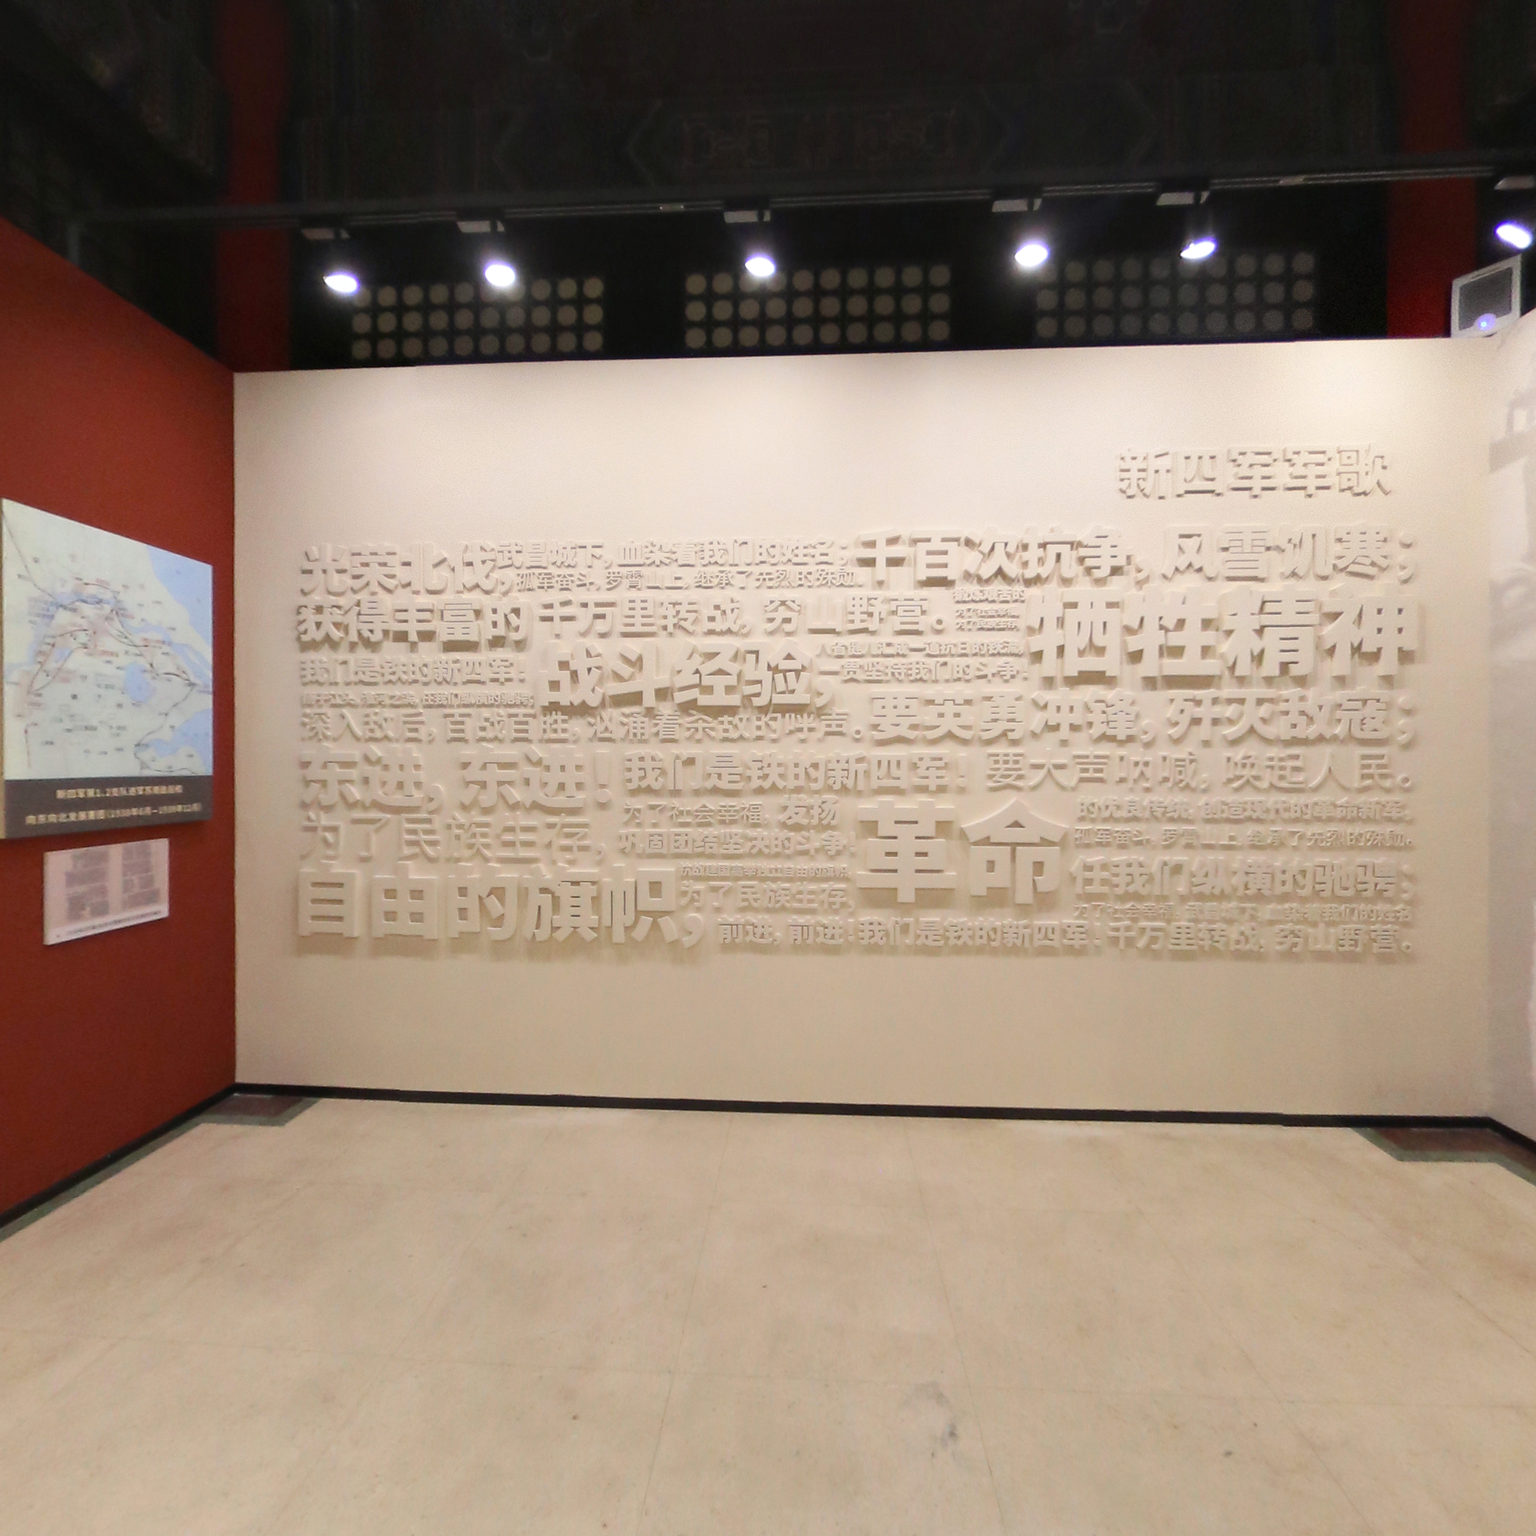 新四军军歌
光荣北伐,武昌城下,血染着我们的姓名;千百次抗争,风雪饥寒;
孤军奋斗,罗霄山上,继承了先烈的殊勋。
获得丰富的千万里转战,穷山野营。牺牲精神
我们是铁的新四军!战斗经验,
一贯坚持我们的斗争!
八省健儿汇成一道抗日的铁流,
深入敌后,百战百胜,汹涌着杀敌的呼声。要英勇冲锋,歼灭敌寇;
东进,东进!我们是铁的新四军!要大声呐喊,唤起人民。
为了民族生存,为了社会幸福,发扬革命的优良传统,创造现代的革命新军,
巩固团结坚决的斗争!孤军奋斗,罗霄山上,继承了先烈的殊勋。
自由的旗帜,为了民族生存,任我们纵横的驰骋;
为了社会幸福,武昌城下,血染着我们的姓名
前进,前进!我们是铁的新四军!千万里转战,穷山野营。
新四军第1、2支队进军苏南敌后和
向东向北发展要图(1938年6月—1939年12月)